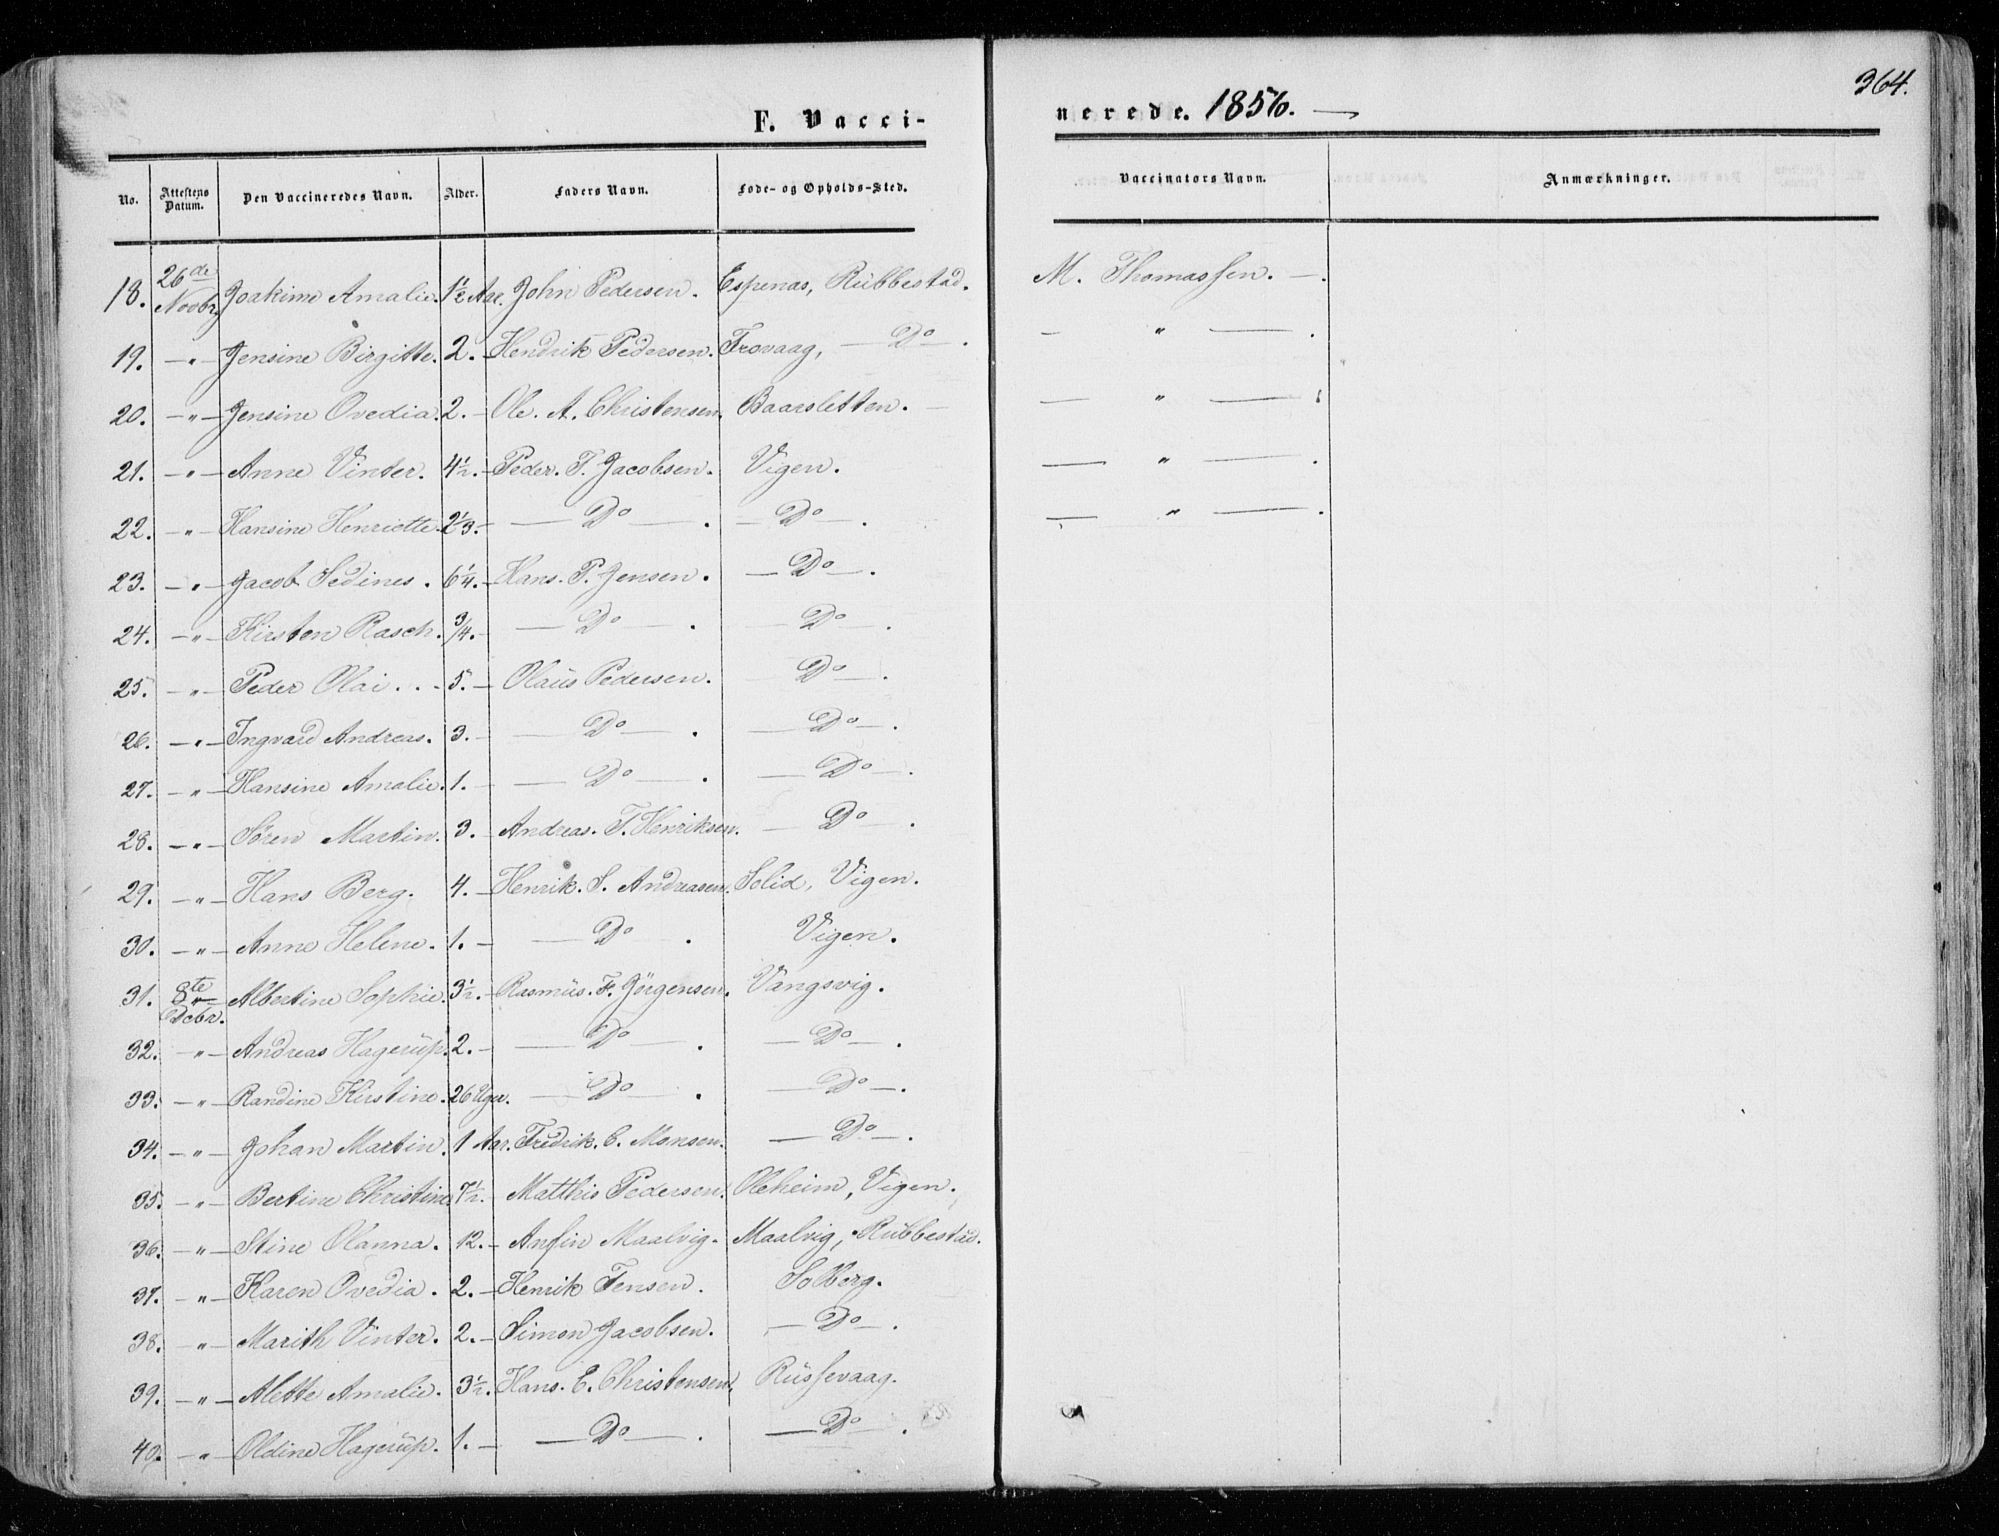 364.
F. Vacci-
nerede. 1856. —
No. Attestens Datum. Den Vaccineredes Navn. Alder. Faders Navn. Føde- og Opholds-Sted. Vaccinators Navn. Anmærkninger.
18. 26de Novbr. Joakime Amalie. 1½ Aar. John Pedersen. Espenæs, Rübbestad. M. Thomassen. —.
19. —"— Jensine Birgitte. 2. — Hendrik Pedersen. Trovaag, — Do —. — " —.
20. —"— Jensine Ovedia. 2. — Ole. A. Christensen. Baarsletten. — — " —
21. —"— Anne Vinter. 4½. — Peder. T. Jacobsen. Vigen. — " —.
22. —"— Hansine Henriette. 2⅓. — — Do —. — Do —. — " —.
23. —"— Jacob Sedines. 6¼. — Hans. P. Jensen. — Do —.
24. —"— Kirsten Rasch. ¾. — — Do —. — Do —.
25. —"— Peder Olai . . — 5. — Olaüs Pedersen. — Do —.
26. —"— Ingvard Andreas. 3. — — Do —. — Do —.
27. —"— Hansine Amalie. 1. — — Do —. — Do —.
28. —"— Søren Martin. 3. — Andreas. T. Henriksen. — Do —.
29. —"— Hans Berg. 4. — Henrik. S. Andreasen. Solid, Vigen.
30. —"— Anne Helene. 1. — — Do —. Vigen.
31. 8te Dcbr. Albertine Sophie. 3½. — Rasmüs. F. Jörgensen. Vangsvig.
32. —"— Andreas Hagerüp. 2. — — Do —. — Do —.
33. —"— Randine Kirstine. 26 Uger. — Do —. — Do —.
34. —"— Johan Martin. 1 Aar. Fredrik. C. Monsen. — Do —.
35. —"— Bertine Christine 7½. Matthis Pedersen. Oleheim, Vigen.
36. —"— Stine Olanna. 12. — Anfin Maalvig. Maalvig, Rübbestad.
37. —"— Karen Ovedia. 2. — Henrik Jensen. Solberg.
38. —"— Marith Vinter. 2. — Simon Jacobsen. — Do —.
39. —"— Alette Amalie. 3½. Hans. E. Christensen. Rüssevaag.
40. —"— Oldine Hagerüp. 1. — — Do —. — Do —.